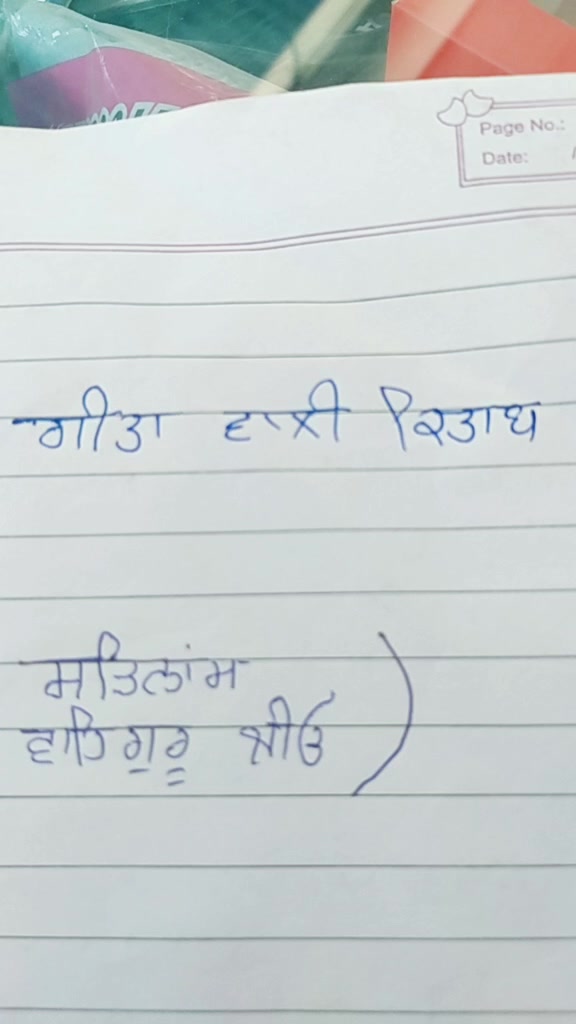 Page No.:
Date:
ਗੀਤਾ ਵਾਲੀ ਕਿਤਾਬ
ਸਤਿਨਾਂਮ
ਵਾਹਿਗੁਰੂ ਜੀਓ